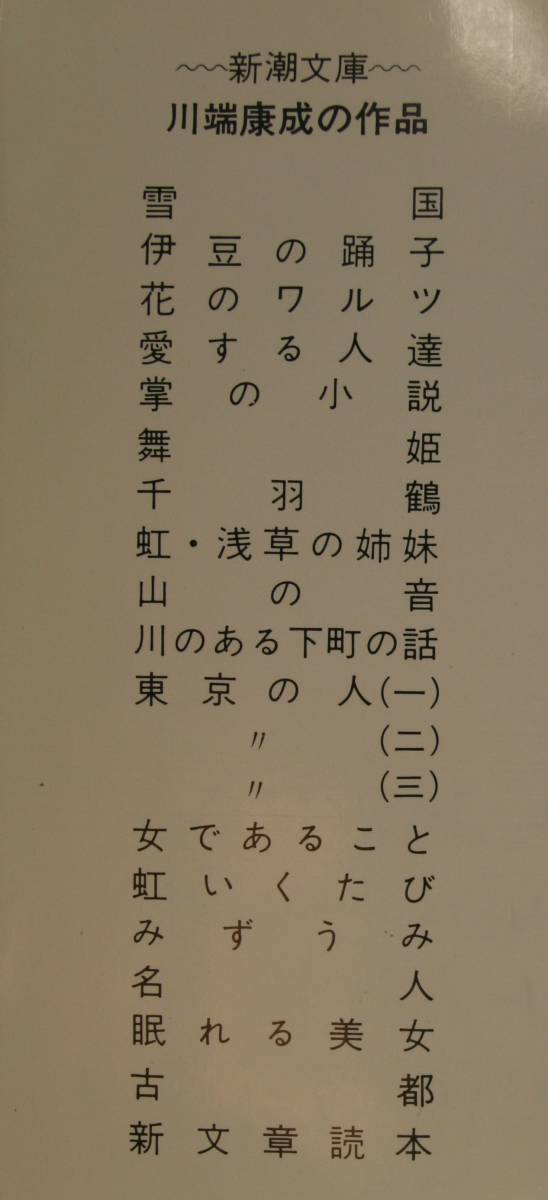 〜〜新潮文庫〜〜
川端康成の作品
雪国
伊豆の踊子
花のワルツ
愛する人達
掌の小説
舞姫
千羽鶴
虹・浅草の姉妹
山の音
川のある下町の話
東京の人(一)
〃(二)
〃(三)
女であること
虹いくたび
みずうみ
名人
眠れる美女
古都
新文章読本